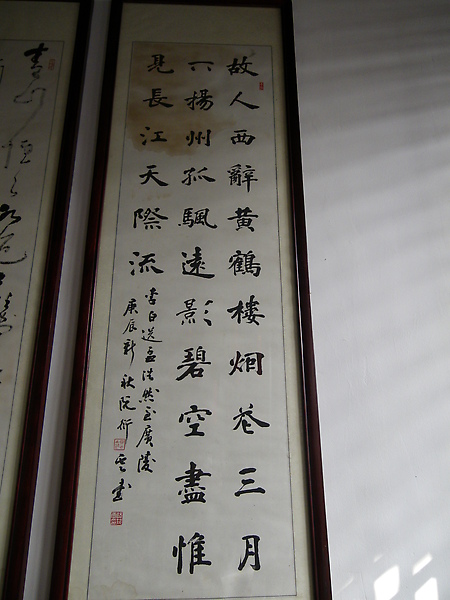 故人西辭黃鶴樓烟花三月
下揚州孤颿遠影碧空盡惟
見長江天際流
李白送孟浩然至廣陵
庚辰新秋阮衍云書
青山